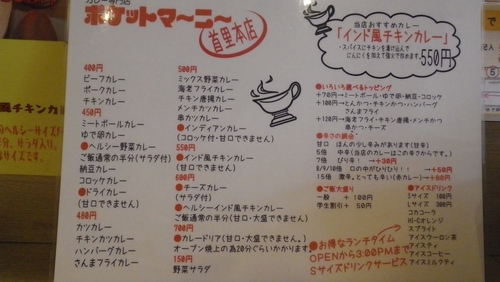 カレー専門店
ポケットマーニー
首里本店
当店おすすめカレー
「インド風チキンカレー」
・スパイスにチキンを漬け込んで
にんにくを加えて強火で炒めます。
550円
400円
ビーフカレー
ポークカレー
チキンカレー
450円
ミートボールカレー
ゆで卵カレー
●ヘルシー野菜カレー
ご飯通常の半分(サラダ付)
納豆カレー
コロッケカレー
●ドライカレー
(甘口できません)
480円
カツカレー
チキンカツカレー
ハンバーグカレー
さんまフライカレー
500円
ミックス野菜カレー
海老フライカレー
チキン唐揚カレー
メンチカツカレー
串カツカレー
●インディアンカレー
(コロッケ付・甘口できません)
550円
●インド風チキンカレー
(甘口できません)
600円
●チーズカレー
(サラダ付)
●ヘルシーインド風チキンカレー
ご飯通常の半分(甘口・大盛できません)
700円
●カレードリア(甘口・大盛できません。)
オーブン焼上の為20分ぐらいかかります
150円
野菜サラダ
●いろいろ選べるトッピング
+70円→ミートボール・ゆで卵・納豆・コロッケ
+100円→とんかつ・チキンかつ・ハンバーグ
さんまフライ
+120円→海老フライ・チキン唐揚・メンチかつ
串かつ・チーズ
●辛さの調合
甘口 ほんの少し辛みがあります(甘辛)
5倍 中辛(当店のカレーはこの辛さからです。)
7倍 ぴり辛!
→+30円
8/9/10倍 口の中がひりひり!!
→+50円
15倍 激辛。とっても辛い(赤カレー)
→+80円
●ご飯大盛り
一般 +100円
学生割引 +50円
●アイスドリンク
Sサイズ 100円
Lサイズ 300円
コカコーラ
HI-Cオレンジ
スプライト
アイスウーロン茶
アイスティ
アイスコーヒー
アイスミルクティ
●お得なランチタイム
OPENから3:00PMまで
Sサイズドリンクサービス
風チキンカ